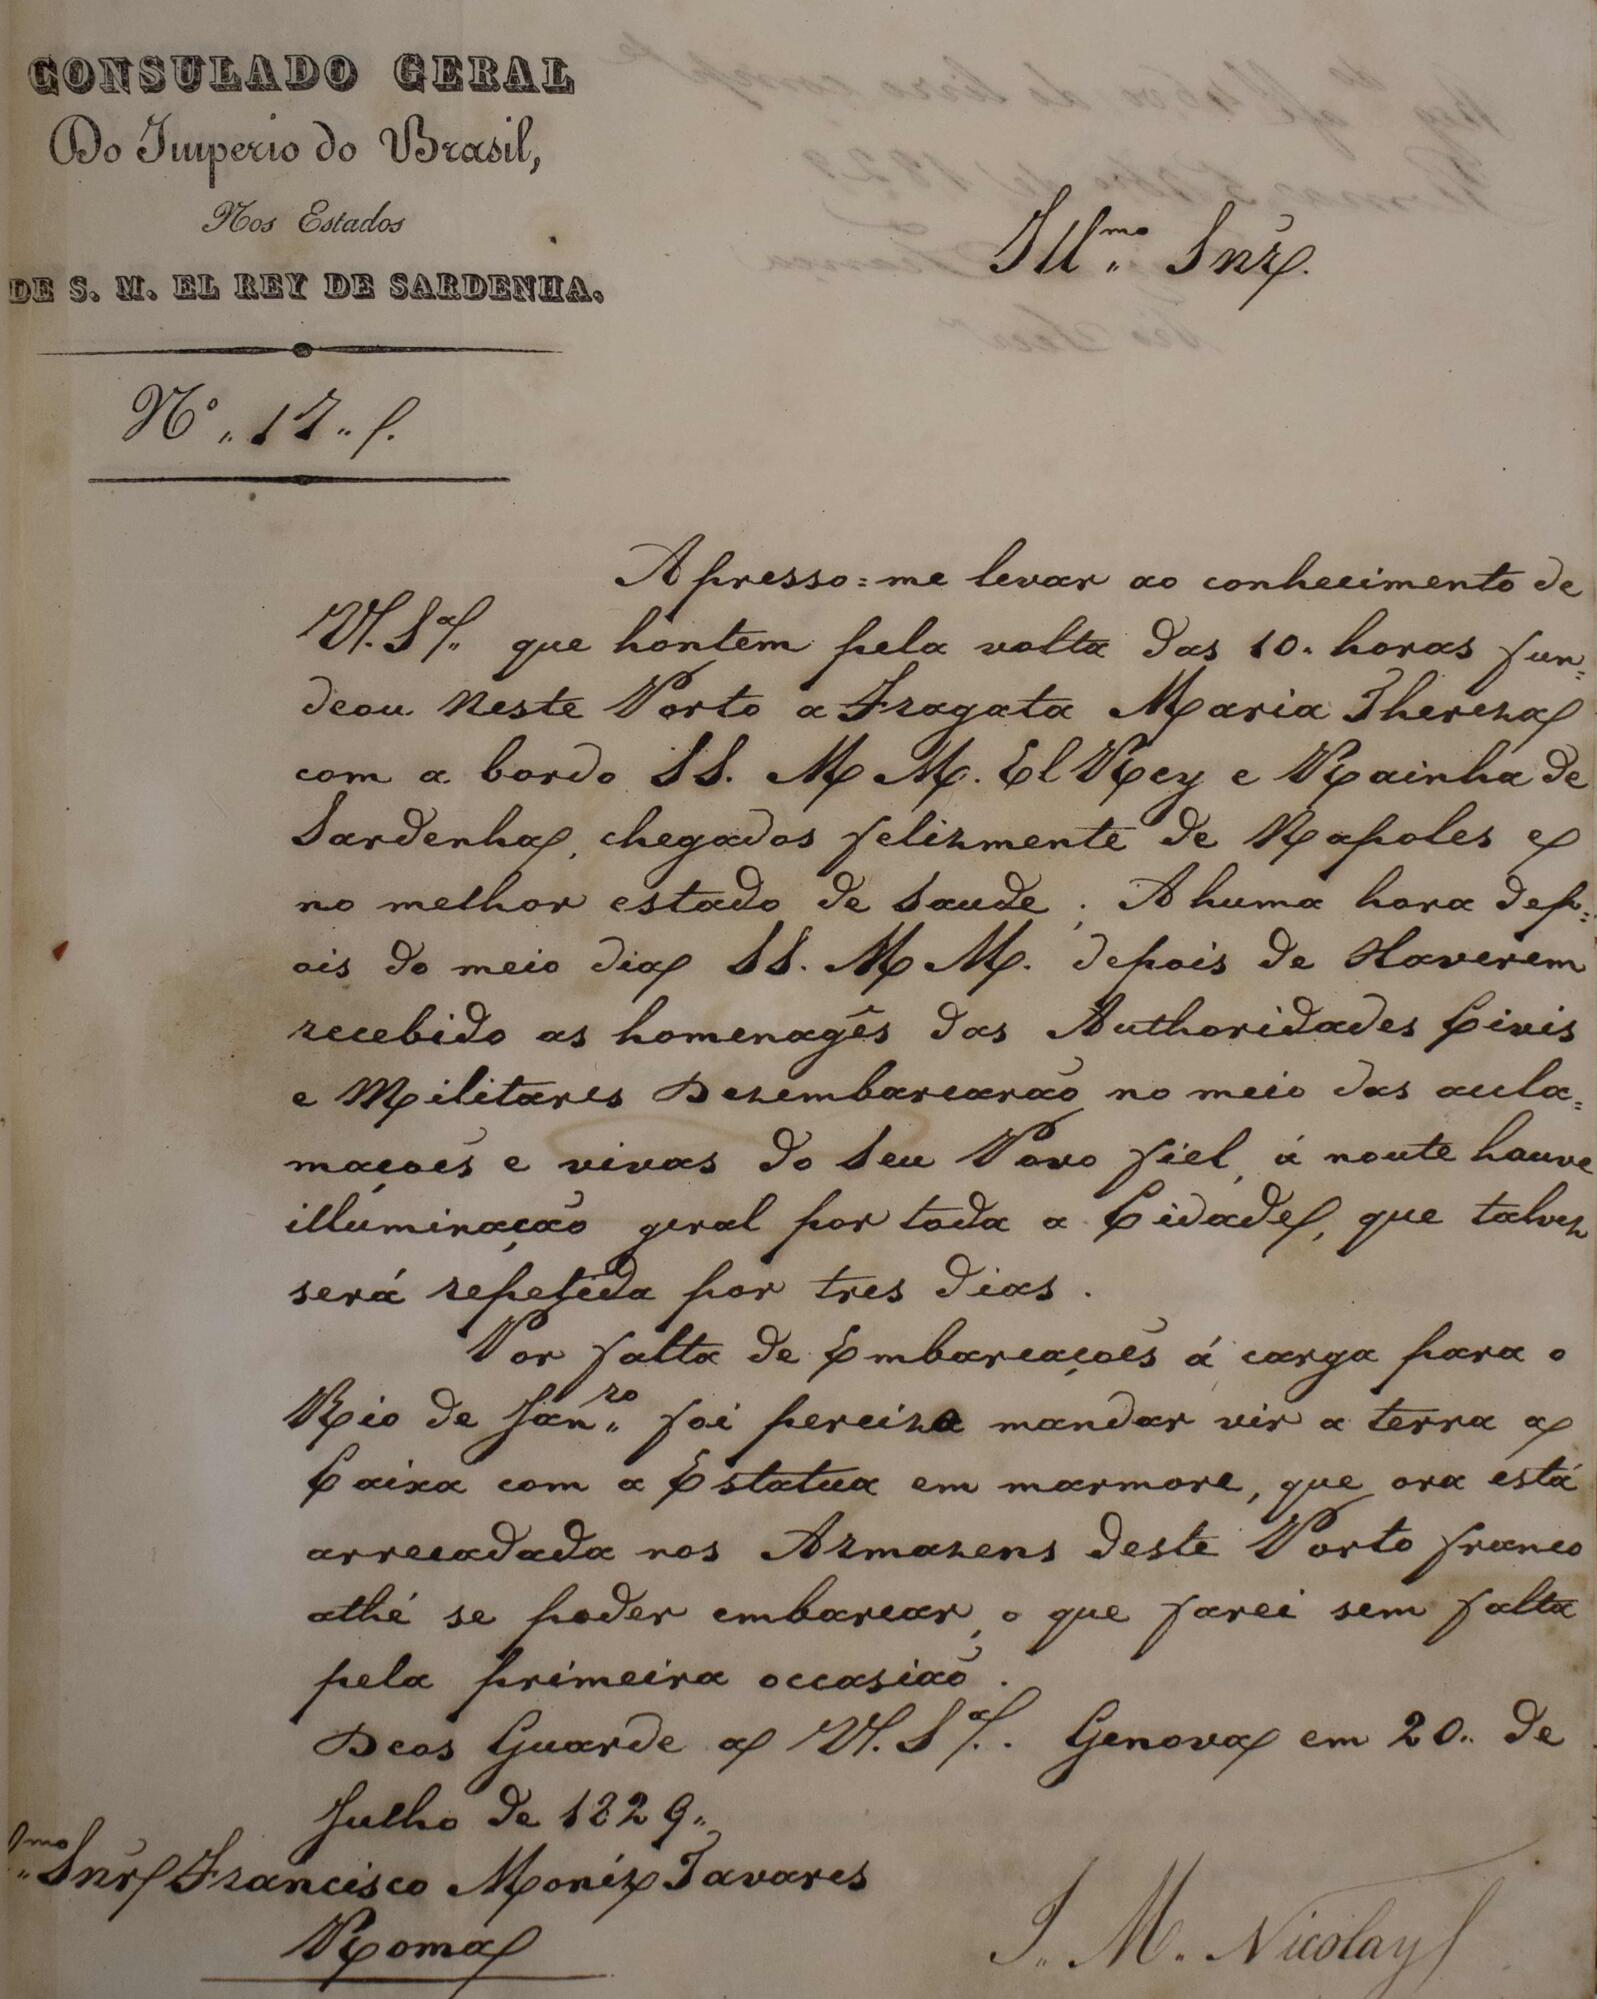 CONSULADO GERAL
Do Imperio do Brasil,
Nos Estados
DE S. M. EL REY DE SARDENHA.
Nº 17
Ill.mo Snr.
Apresso=me levar ao conhecimento de
V. S.ª que hontem pela volta das 10. horas fun=
deou neste Porto a Fragata Maria Thereza
com a bordo SS. M M. El Rey e Rainha de
Sardenha, chegados felizmente de Napoles e
no melhor estado de Saude; A huma hora dep=
ois do meio dia SS. M M. depois de Haverem
recebido as homenagẽs das Authoridades Civis
e Militares Dezembarcarão no meio das acla=
mações e vivas do Seu Povo fiel, á noute houve
illúminação geral por toda a Cidade, que talvez
será repetida por tres dias.
Por falta de Embarcações á carga para o
Rio de Jan.ro foi percizo mandar vir a terra a
Caixa com a Estatua em marmore, que ora está
arrecadada nos Armazens deste Porto franco
athé se poder embarcar, o que farei sem falta
pela primeira occasião.
Deos Guarde a V. S.ª. Genova em 20. de
Julho de 1829.
mo Snr Francisco Moniz Tavares
Roma
J. M. Nicolay